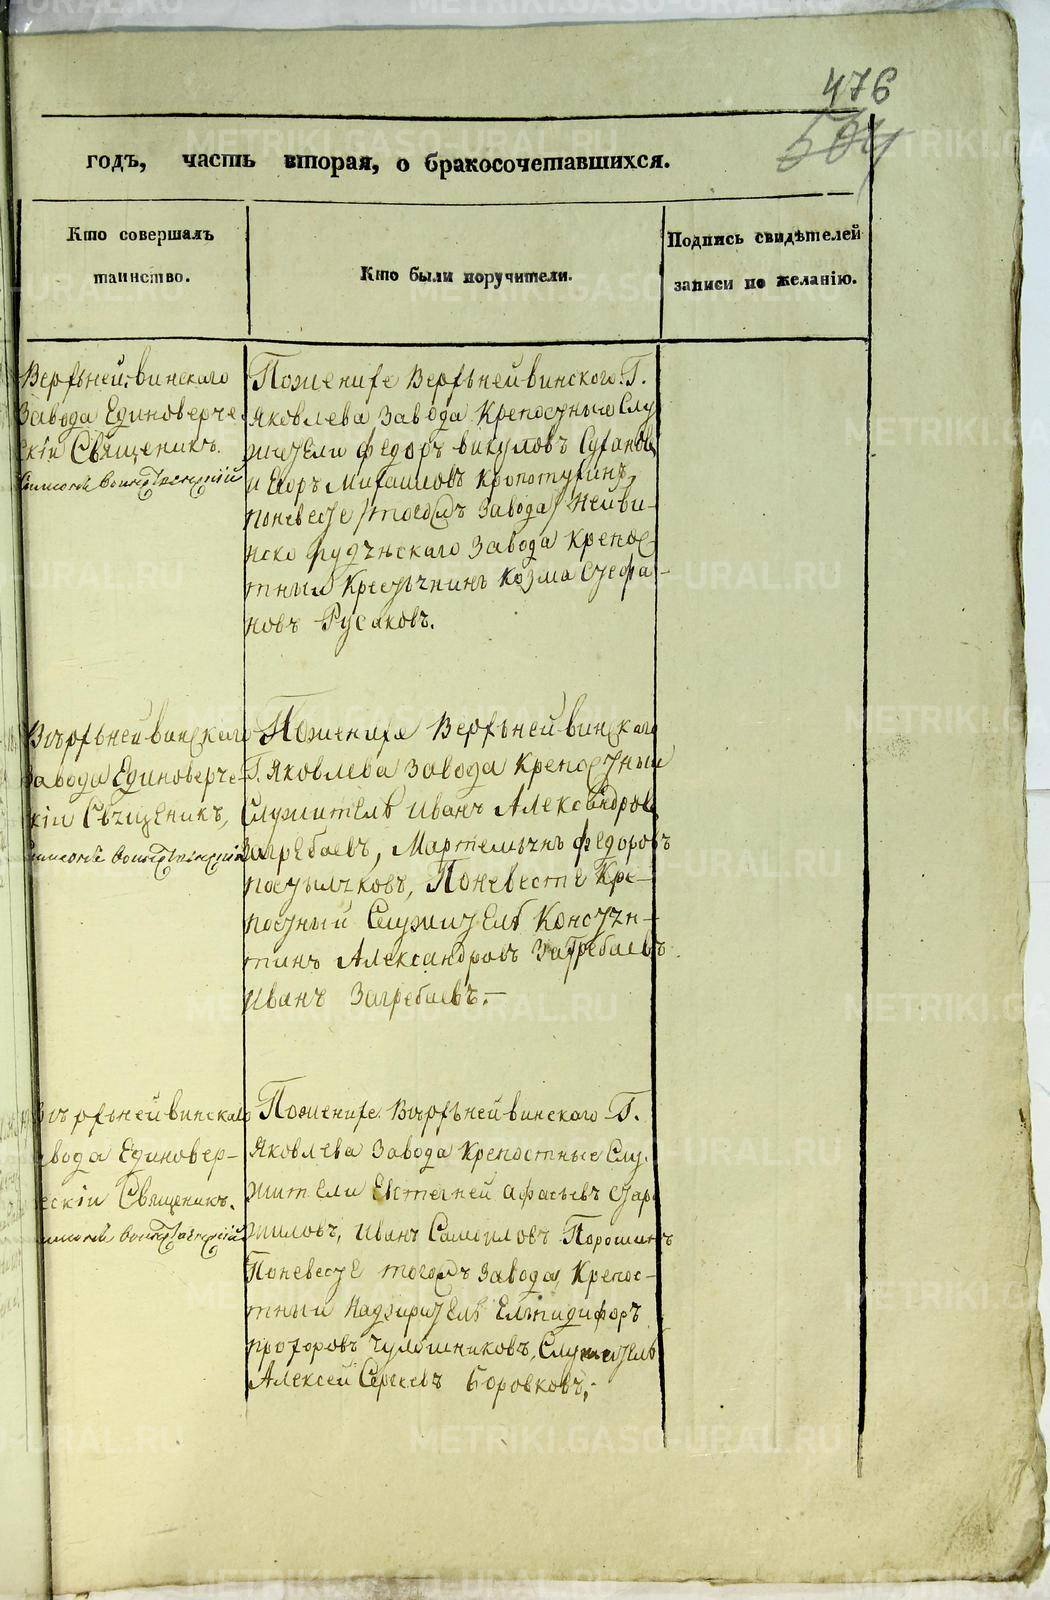 476
504
годъ, часть вторая, о бракосочетавшихся.
Кто совершалъ
таинство.
Кто были поручители.
Подпись свидѣтелей
записи по желанію.
Верхнейвинскаго
Завода Единоверче-
скіи Священикъ.
Поженихе Верхнейвинского Г.
Яковлева Завода Крепостные Слу
жители Федоръ Викуловъ
и Егоръ Михаиловъ Кропотухинъ,
Поневесте /тогожъ Завода/ Нейви-
нско рудянскаго Завода Крепос
тный Крестьянинъ Козма Стефа-
новъ Русаковъ.
Вѣрхьнейвинскаго
Завода Единоверче-
скіи Священикъ,
Поженихе Верхьнейвинскаго
Г. Яковлева Завода Крепостный
Служитель Иванъ Александровъ
Загребаевъ, Мартемьянъ Федоровъ
Поневесте Кре-
постный Служитель Констян-
тинъ Александровъ Загребаевъ
Иванъ Загребаевъ.—
Вѣрхьнейвинскаго
Завода Единовер-
ческіи Священикъ.
Поженихе Вѣрхьнейвинского Г.
Яковлева Завода Крепостные Слу
жители Евстегней
Иванъ Самоиловъ Порошинъ
Поневесте тогожъ Завода, Крепос-
тный Надзиратель Елпидифоръ
Прохоровъ Служитель
Алексей Сергеевъ Боровковъ,-